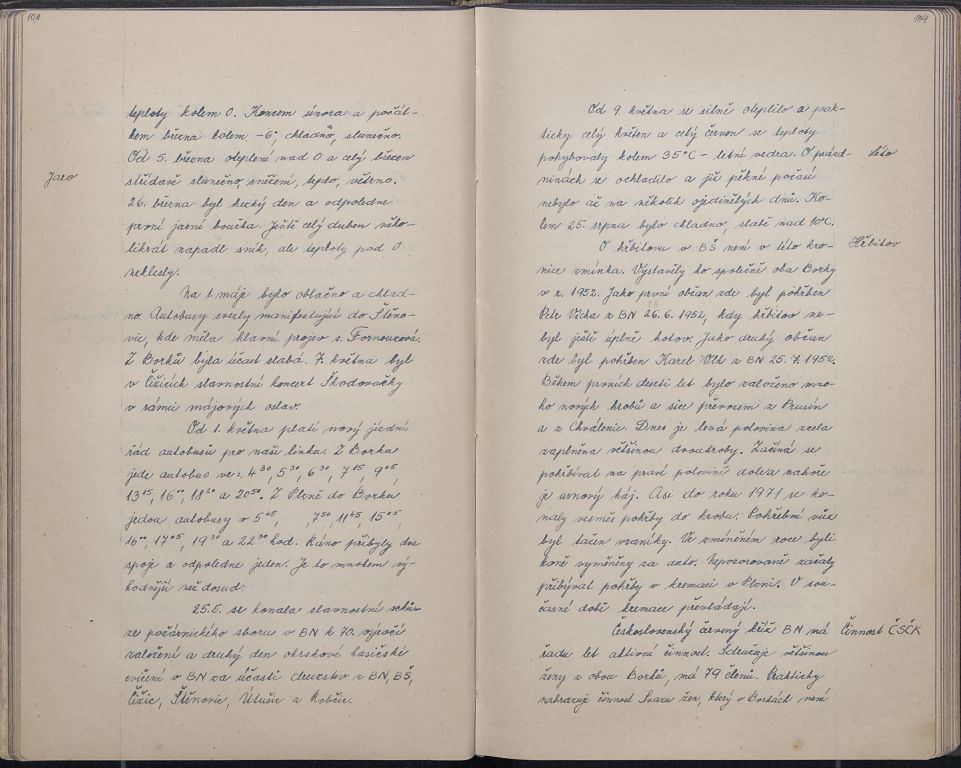 108
teploty kolem 0. Koncem února a počát-
kem března kolem -6°, chladno, slunečno.
Od 5. března oteplení nad 0 a celý březen
Jaro
střídavě slunečno, sněžení, teplo, větrno.
26. března byl hezký den a odpoledne
první jarní bouřka. Ještě celý duben něko-
likrát napadl sníh, ale teploty pod 0
neklesly.
Na 1. máje bylo oblačno a chlad-
no. Autobusy svezly manifestující do Štěno-
vic, kde měla hlavní projev s.
Z Borků byla účast slabá. 7. května byl
v Čižicích slavnostní koncert Škodovačky
v rámci májových oslav.
Od 1. května platí nový jízdní
řád autobusů pro naši linku. Z Borku
jede autobus ve: 4³⁰, 5³⁰, 6³⁰, 7¹⁵, 9⁰⁵,
13¹⁵, 16⁰⁰, 18²⁰ a 20⁵⁰. Z Plzně do Borku
jedou autobusy v 5⁴⁵, , 7⁵⁰, 11⁴⁵, 15⁰⁵,
16⁰⁰, 17⁰⁵, 19³⁰ a 22³⁰ hod. Ráno přibyly dva
spoje a odpoledne jeden. Je to mnohem vý-
hodnější než dosud.
25.5. se konala slavnostní schů-
ze požárnického sboru v BN k 70. výročí
založení a druhý den okrskové hasičské
cvičení v BN za účasti družstev z BN, BŠ,
Čižic, Štěnovic, Útušic a Robčic.
109
Od 9. května se silně oteplilo a prak-
ticky celý květen a celý červen se teploty
pohybovaly kolem 35°C – letní vedra. O prázd-
Léto
ninách se ochladilo a již pěkné počasí
nebylo až na několik ojedinělých dnů. Ko-
lem 25. srpna bylo chladno, slabě nad 10°C.
O hřbitovu v BŠ není v této kro-
Hřbitov
nice zmínka. Vystavěly ho společně oba Borky
v r. 1952. Jako první občan zde byl pohřben
Petr z BN 26. 6. 1952, kdy hřbitov ne-
byl ještě úplně hotov. Jako druhý občan
zde byl pohřben Karel Vlk z BN 25. 7. 1952.
Během prvních deseti let bylo založeno mno-
ho nových hrobů a sice převozem z Prusin
a z Chválenic. Dnes je levá polovina zcela
zaplněna většinou dvouhroby. Začíná se
pohřbívat na pravé polovině dole a nahoře
je urnový háj. Asi do roku 1971 se ko-
naly vesměs pohřby do hrobu. Pohřební vůz
byl tažen vraníky. Ve zmíněném roce byli
koně vyměněny za auto. Nepozorovaně začaly
přibývat pohřby v kremaci v Plzni. V sou-
časné době kremace převládají.
Československý červený kříž BN má
Činnost ČSČK
řadu let aktivní činnost. Sdružuje většinou
ženy z obou Borků, má 79 členů. Prakticky
nahrazuje činnost Svazu žen, který v Borkách není